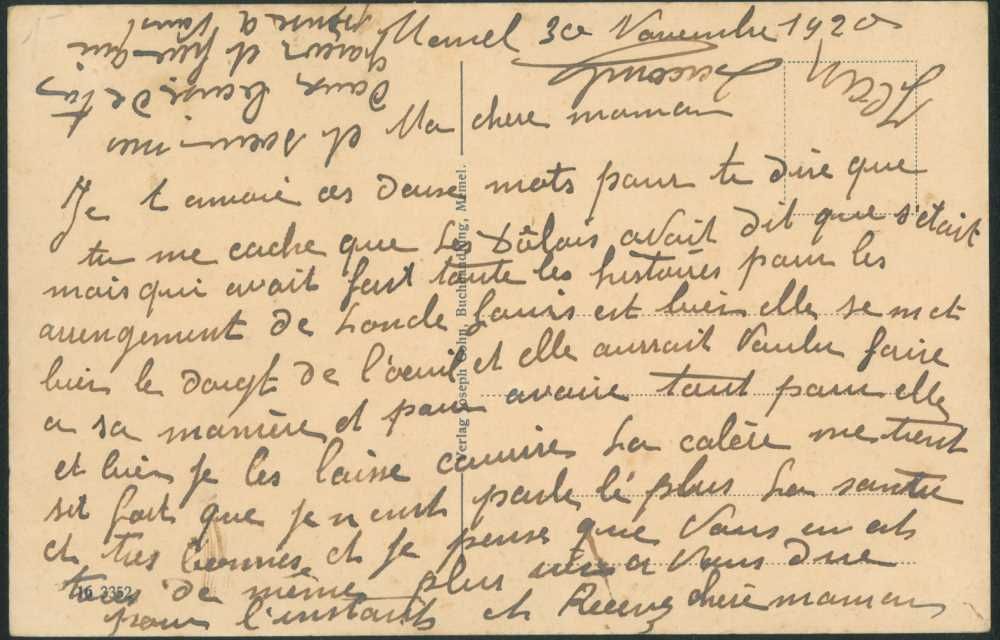 Memel 30 Novembre 1920
Ma chere maman
Je t anvoie ces deuse mots pour te dire que
tu me cache que les Dâlais avait dit que s'etait
mais qui avait fait toute les histoires pour les
arrengement de Loncle Louis et bien elle se met
bien le doigt de l'oeuil et elle aurrait Voulu faire
a sa manière et pour avoire tout pour elle
et bien je les laisse courire La colère me tient
sit fort que je n ent parle lé plus La santee
et tres bonnes et je pense que Vous en ait
tous de même plus rien a Vous dire
pour l'instant et Recevez chère maman
et soeur mes
deux baisés de ton
garcon et frere qui
pense a
Vous
Jean
Verlag Joseph Cohn, Buchhandlung, Memel.
16 3352